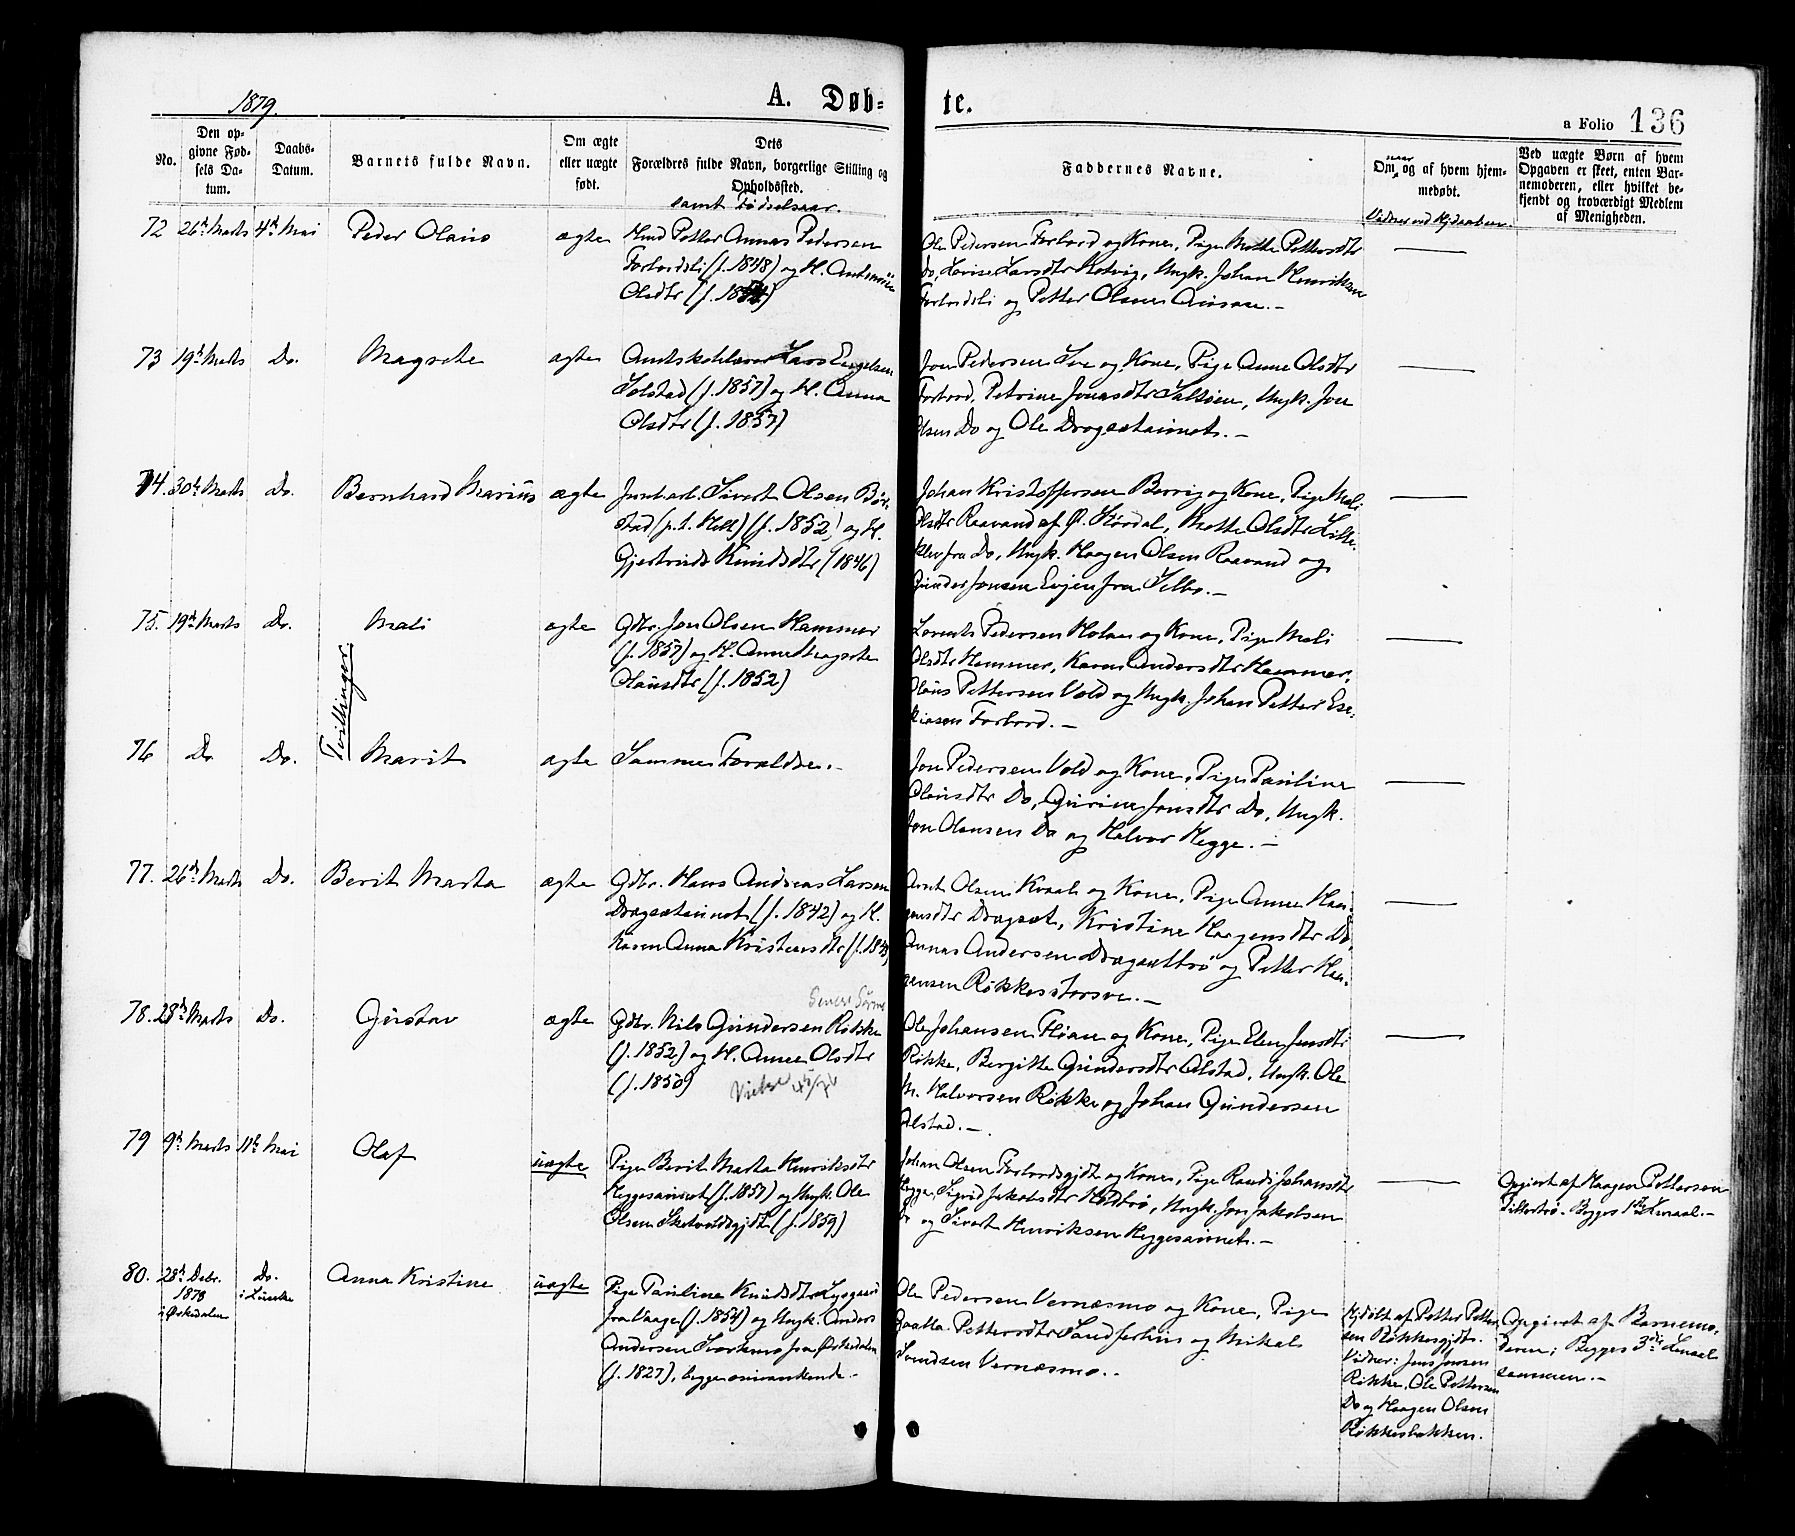 1879.
A. Døb-
te.
a Folio 136
No.
Den op-
givne Fød-
sels Da-
tum.
Daabs-
Datum.
Barnets fulde Navn.
Om ægte
eller uægte
født.
Dets
Forældres fulde Navn, borgerlige Stilling og
Opholdssted.
samt Fødselsaar.
Faddernes Navne.
Om naar og af hvem hjem-
medøbt.
Vidner ved Hjdaaben
Ved uægte Børn af hvem
Opgaven er skeet, enten Bar-
nemoderen, eller hvilket be-
kjendt og troværdigt Medlem
af Menigheden.
72 26de Marts 4de Mai Peder Olaus ægte
Petter Annas Pedersen
Forbordsli (f. 1848) og H.
Olsdtr (f.
Ole Pedersen Forbord og Kone, Pige Mette Pettersdtr
Do, Lovise Larsdtr Hotvig, Ungk. Johan Henriksen
Forbordsli og Petter Olsen
73 19de Marts Do. Magrete ægte
Lars Engelsen
Solstad (f. 1857) og H. Anna
Olsdtr (f. 1857)
Jon Pedersen Sve og Kone, Pige Anne Olsdtr
Forbord, Petrine Jonasdtr Saltøien, Ungk. Jon
Olsen Do og Ole Dragsetaunet. –
74. 30te Marts Do. Bernhard Marius ægte
Jernbarb. Sivert Olsen Bør-
stad (p. t. Hell) (f. 1852) og H.
Gjertrud Knudsdtr (1846)
Johan Kristoffersen Berrig og Kone, Pige Mali
Olsdtr Raavand af Ø. Størdal, Mette Olsdtr Lille-
klev fra Do, Ungk. Haagen Olsen Raavand og
Gunder Jonsen Evjen fra Selbo. –
75. 19de Marts Do. Mali ægte
Tvillinger.
Gdbr. Jon Olsen Hammer
(f. 1857) og H. Anne Magrete
Olausdtr (f. 1852)
Lorents Pedersen Holan og Kone, Pige Mali
Olsdtr Hammer, Karen Andersdtr Hammer,
Olaus Pettersen Vold og Ungk. Johan Petter Ese-
kiasen Forbord. –
76 Do Do. Marit ægte
Samme Forældre. –
Jon Pedersen Vold og Kone, Pige Pauline
Olausdtr Do, Gurine Jonsdtr Do, Ungk.
Jon Olausen Do og Halvor Hegge. –
77. 26de Marts Do. Berit Marta ægte
Gdbr. Hans Andreas Larsen
Dragsetaunet (f. 1842) og H.
Karen Anna Kristensdtr (f.
Arnt Olsen Kvaal og Kone, Pige Anne Haa-
gensdtr Dragset, Kristine Haagensdtr Do,
Annas Andersen Dragsettrø og Petter Haa-
gensen Røkkestorsve. –
78. 28de Marts Do. Gustav ægte
Gdbr. Nils Gundersen Røkke
(f. 1852) og H. Anne Olsdtr
(f. 1850)
Ole Johansen Fløan og Kone, Pige Elen Jensdtr
Røkke, Bergitte Gundersdtr Alstad, Ungk. Ole
M. Halvorsen Røkke og Johan Gundersen
Alstad. –
79 9de Marts 11te Mai Olaf uægte
Pige Berit Marta Henriksdtr
Heggesaunet (f. 1857) og Ungk. Ole
Olsen Skatvoldsgjdt (f. 1859)
Johan Olsen Forbordsgjdt og Kone, Pige Randi Johansdtr
Hegge, Sigrid Jakobsdtr Ungk. Jon Jakobsen
Do og Sivert Henriksen Heggesaunet. –
Opgivet af Haagen Pettersen
Begges 1ste Leiermaal. –
80. 28de Debr.
1878
i Ørkedalen
Do.
i Lånke
Anna Kristine uægte
Pige Pauline Knudsdtr
fra Vaage (f. 1854) og Ungk. Anders
Andersen fra Ørkedalen
(f. 1827), begge omvankende. –
Ole Pedersen Vernæsmo og Kone, Pige
Pettersdtr Sandferhus og Mikal
Svendsen Vernæsmo. –
Hjdøbt af Petter Petter-
sen Røkkesgjdt.
Vidner: Jens Jonsen
Røkke, Ole Pettersen
Do og Haagen Olsen
Røkkesbakken.
Opgivet af Barnemo-
deren; Begges 3die
sammen. –